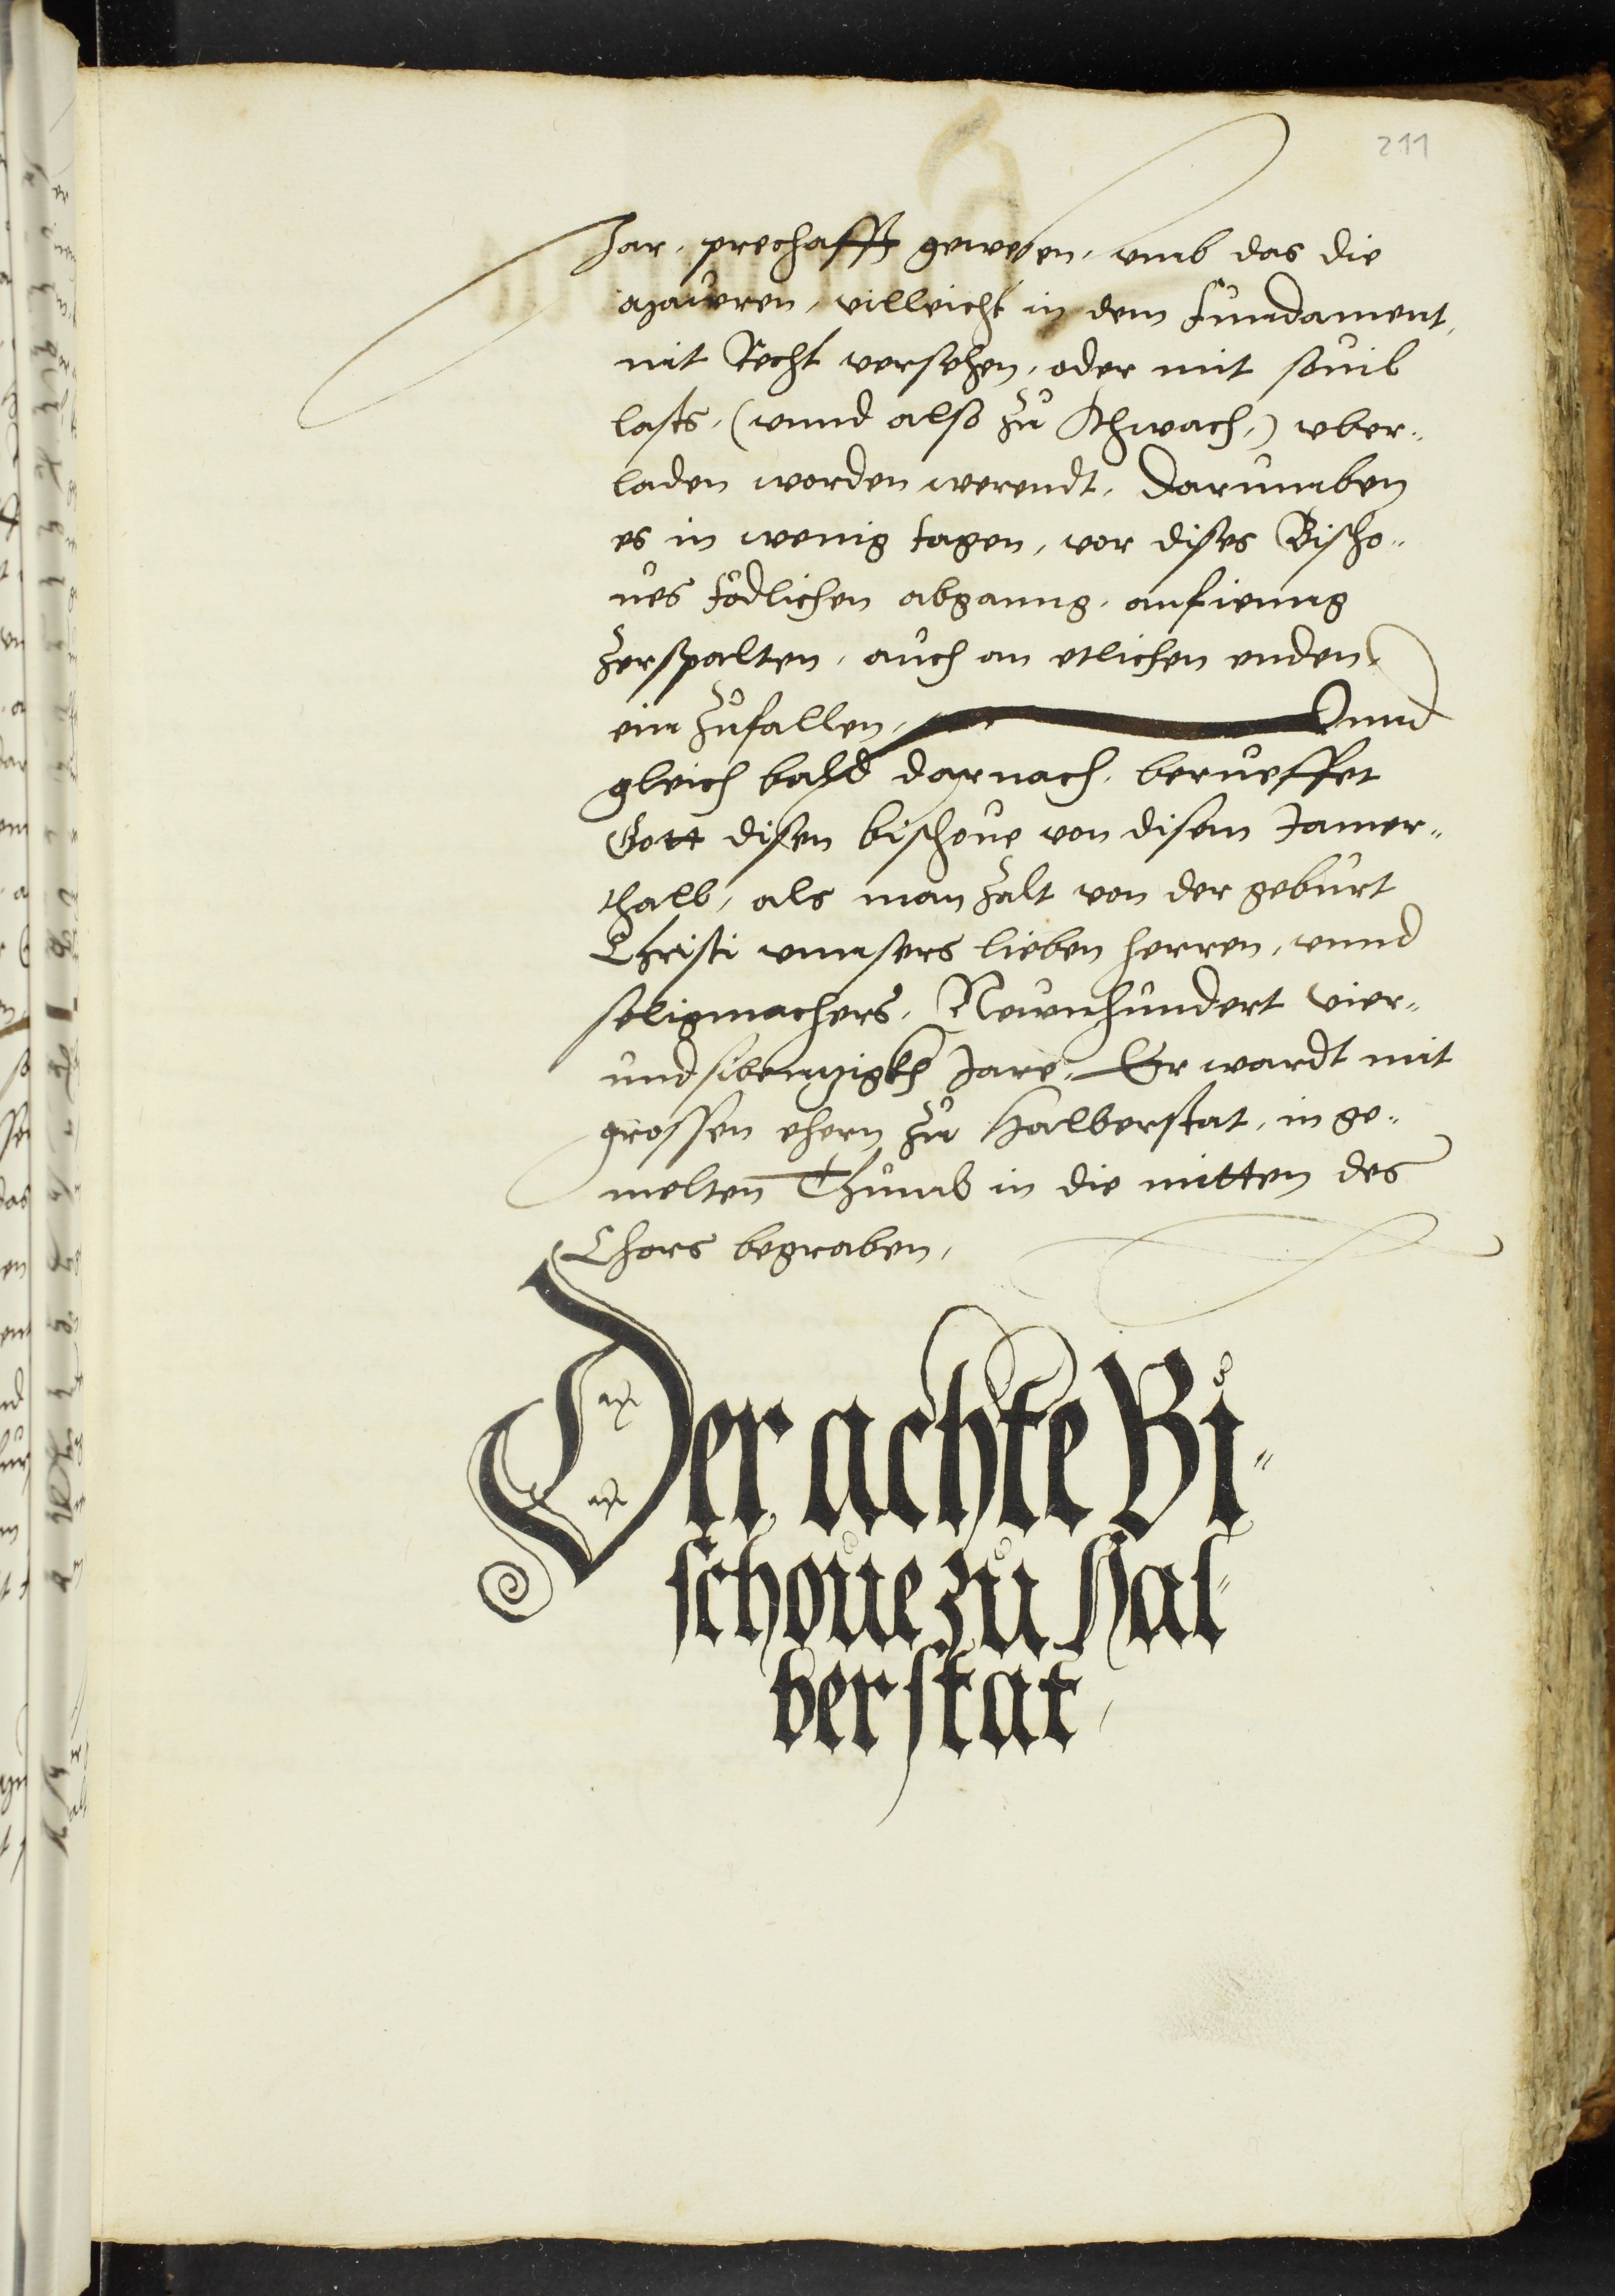 211
Jar, prechafft gewesen, vmb das die
Mauren, villeicht in dem Fundament,
nit Recht versehen, oder mit souil
lasts, (vnnd also zu schwach,) vber„
laden worden werendt, Darumben
es in wenig tagen, vor dises Bischo„
ues tödlichen abganng, anfienng
Zerspalten, auch an etlichen enden,
ein Zufallen, Vnnd
gleich bald darnach, berueffet
Gott disen bischoue von disem Jamer„
thall, als man Zalt von der geburt
Christi vnnsers lieben herren, vnnd
seligmachers, Neünhundert Vier„
und sibentzigkh Jare, Er wardt mit
grossen ehern zu Halberstat, in ge„
melten Thumb in die mitten des
Chors begraben,
Der achte Bi„
schoue zu Hal„
berstat,